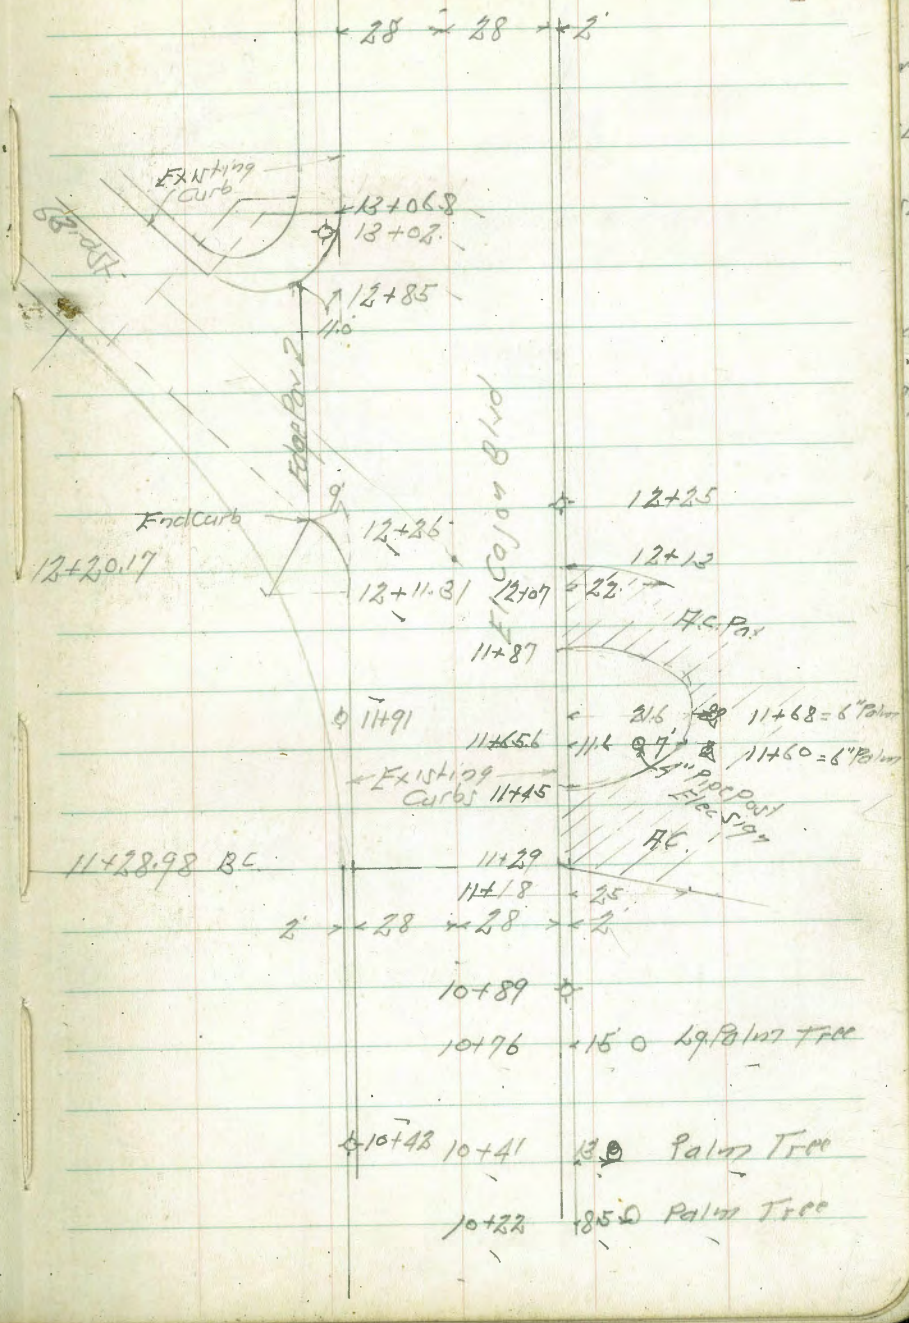 28 28 2'
Existing
Curb
13+06.8
13+02.
68th St.
12+85
4.0
Edge Pav 2
El Cajon Blvd
12+25
End Curb
9'
12+26
12+20.17
12+13
12+11.31 12+07 22'
A.C. Pav
11+87
11+91
21.6 11+68 = 6" Palm
11+65.6 11.6 9.7' 11+60 = 6" Palm
Existing
Curbs
11+45
5" Pipe Post
Elec Sign
A.C.
11+28.98 B.C. 11+29
11+18 25
2' 28 28 2'
10+89
10+76 15 Lg. Palm Tree
10+42 10+41 13 Palm Tree
10+22 8.5 Palm Tree